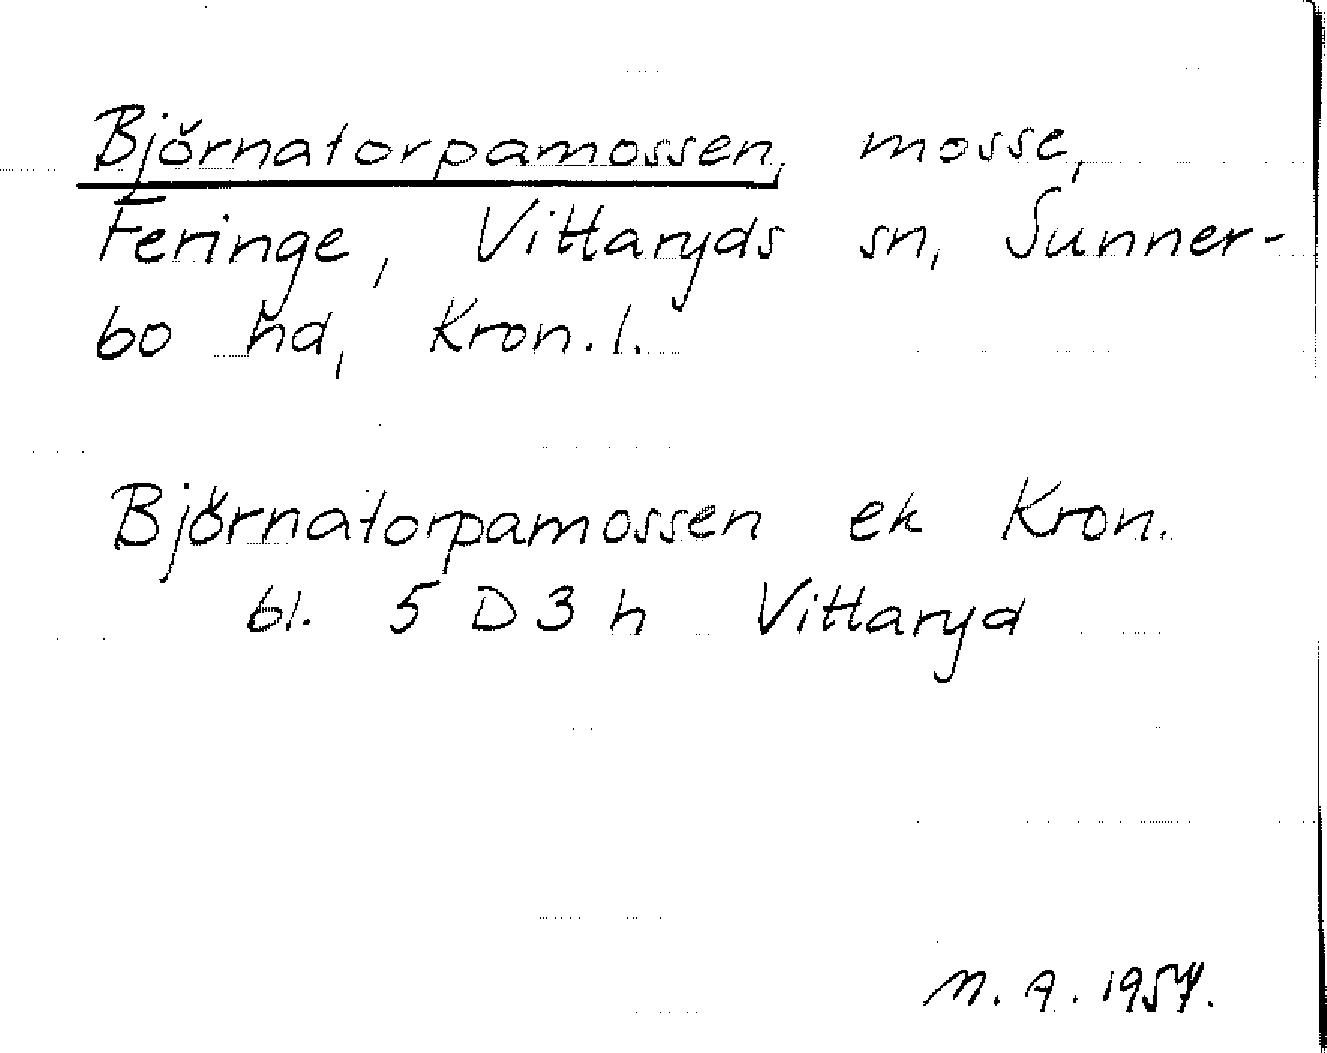 Björnatorpamossen, mosse,
Feringe, Vittaryds sn, Sunner-
bo hd, Kron. l.
Björnatorpamossen ek Kron.
bl. 5 D 3 h Vittaryd
M. A. 1957.